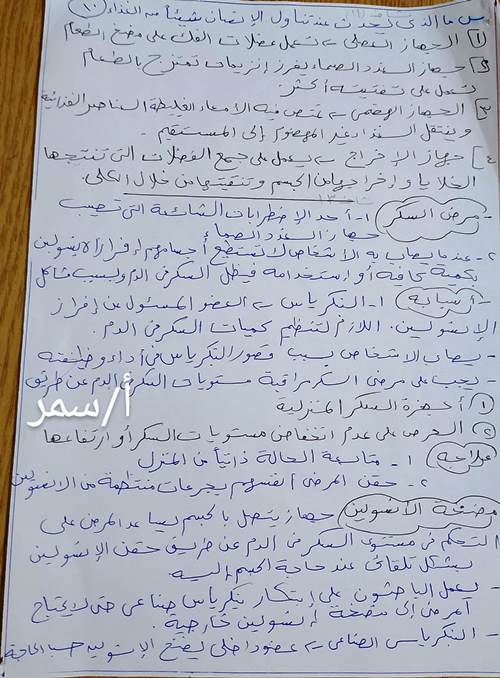 س ما الذى يحدث عند تناول الإنسان شيئاً من الغذاء؟
١ الجهاز العضلى ← تعمل عضلات الفك على مضغ الطعام
٢ جهاز الغدد الصماء يفرز إنزيمات تمتزج بالطعام
تعمل على تفتيته أكثر
٣ الجهاز الهضمى ← تمتص فيه الأمعاء الغليظة العناصر الغذائية
وينتقل الغذاء غير المهضوم إلى المستقيم .
٤ جهاز الإخراج ← يعمل على جمع الفضلات التى تنتجها
الخلايا وإخراجها من الجسم وتنقيتها من خلال الكلى.
- مرض السكر ١- أحد الإضطرابات الشائعة التى تصيب
جهاز الغدد الصماء
٢- عندما يصاب به الأشخاص لا تستطيع أجسامهم إفراز الانسولين
بكمية كافية أو استخدامه فيظل السكر فى الدم ويسبب مشاكل
- أسبابه ١- البنكرياس ← العضو المسئول عن إفراز
الإنسولين اللازم لتنظيم كميات السكر فى الدم .
- يصاب الأشخاص بسبب قصور البنكرياس فى أداء وظيفته
- يجب على مرضى السكر مراقبة مستويات السكر فى الدم عن طريق
١ أجهزة السكر المنزلية
أ/سمر
٢ الحرص على عدم انخفاض مستويات السكر أو ارتفاعها
علاجه ١- متابعة الحالة ذاتياً من المنزل
٢- حقن المرضى أنفسهم بجرعات منتظمة من الانسولين
مضخة الأنسولين جهاز يتصل بالجسم يساعد المرضى على
التحكم فى مستوى السكر فى الدم عن طريق حقن الإنسولين
بشكل تلقائى عند حاجة الجسم إليه
- يعمل الباحثون على إبتكار بنكرياس صناعى حتى لا يحتاج
المرضى إلى مضخة إنسولين خارجية .
- البنكرياس الصناعى ← عضو داخلى يضخ الإنسولين حسب الحاجة